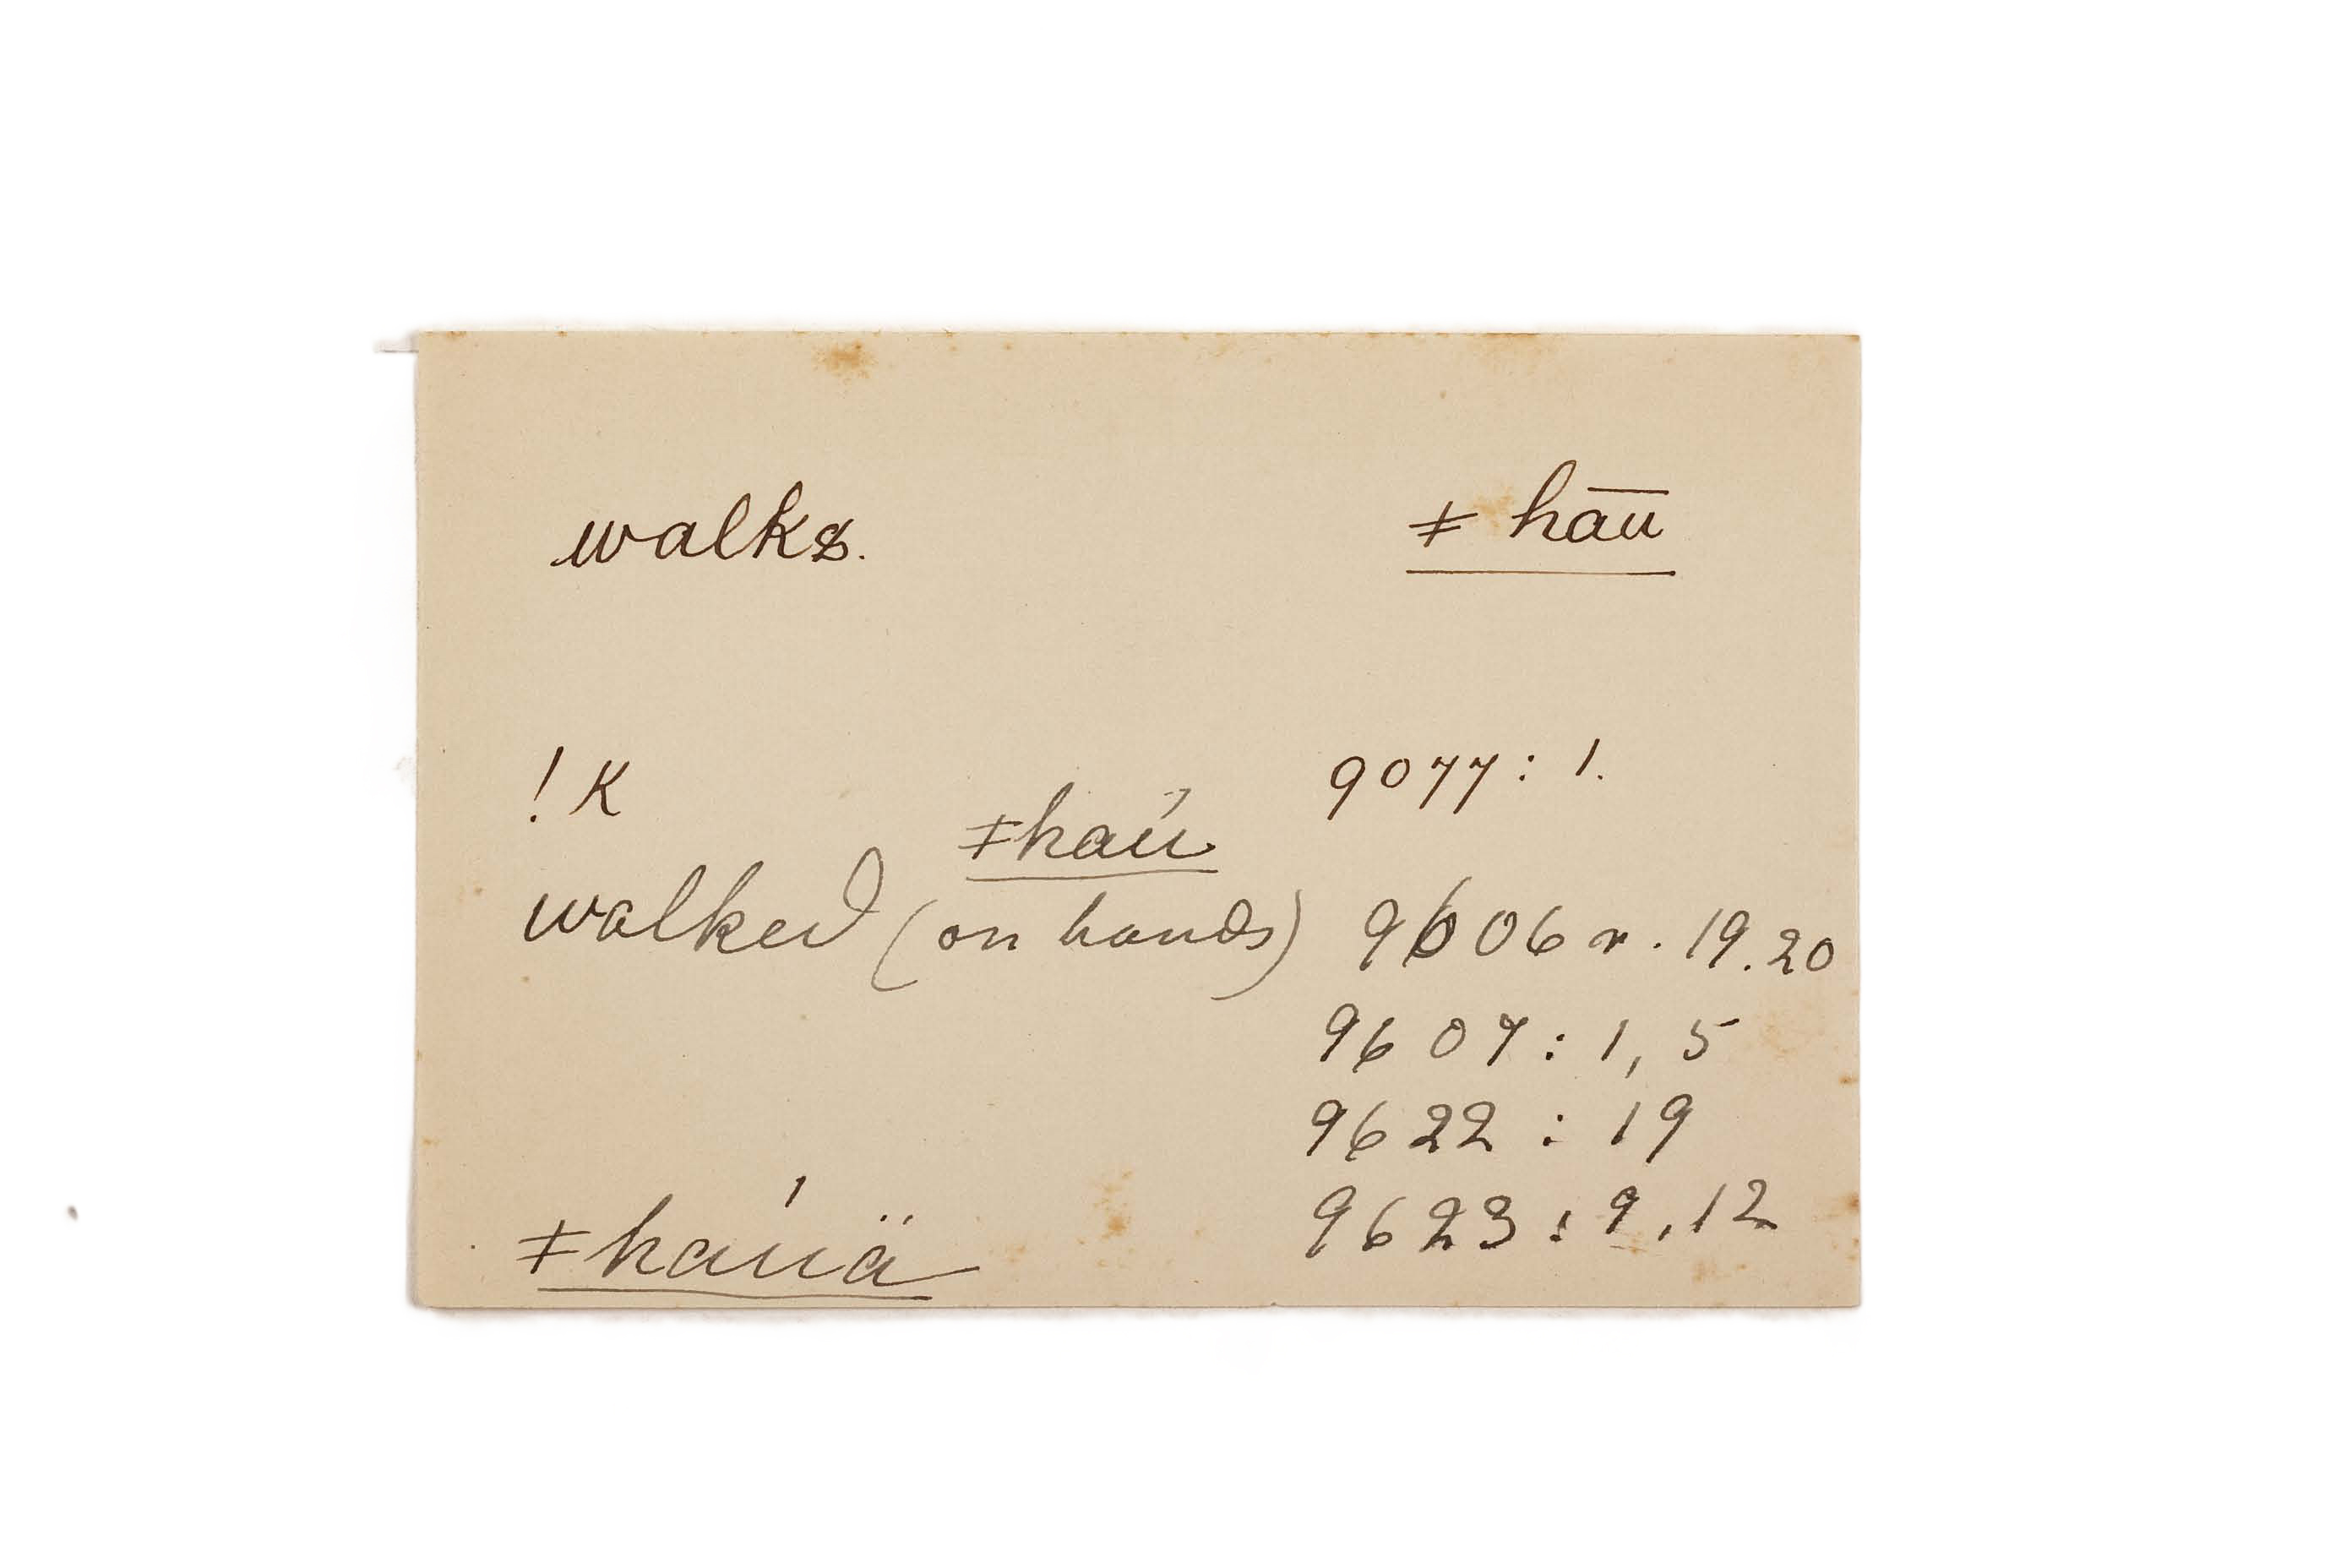 walks. ǂ hau̅
! K 9077 : 1.
ǂhaú
walked (on hands) 9606 r. 19.20
9607 : 1, 5
9622 : 19
9623 : 9, 12
ǂhaúä